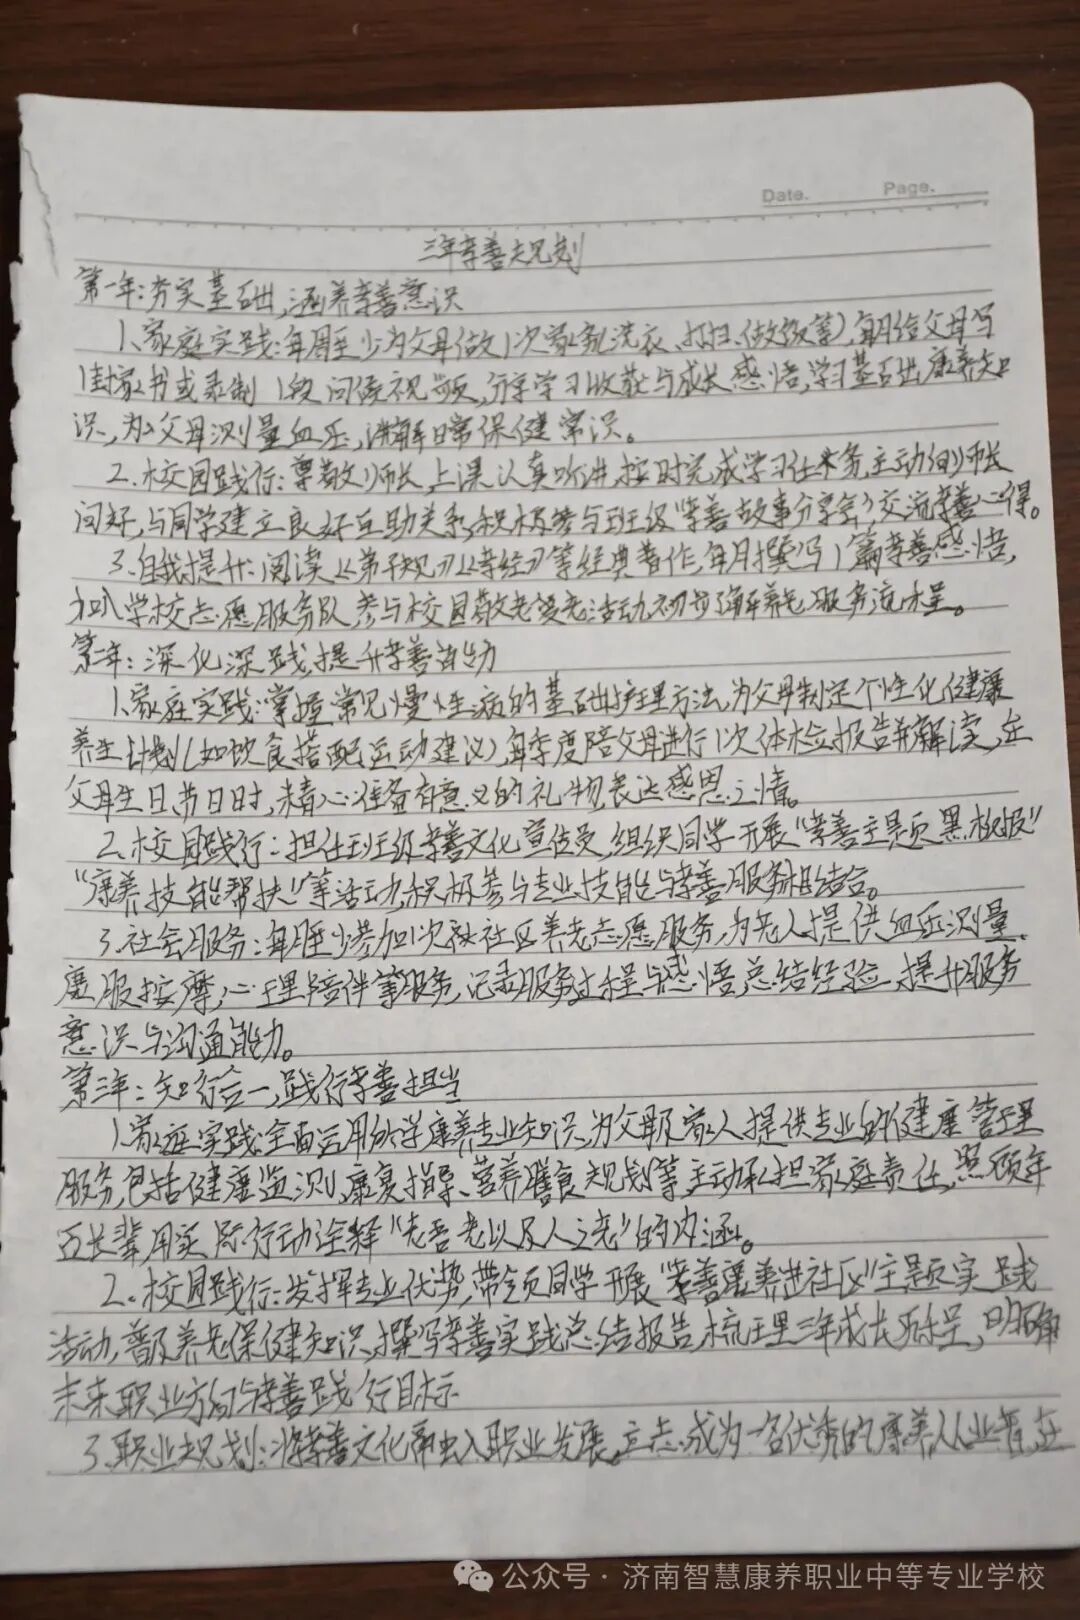 Date. Page.
三年孝善规划
第一年:夯实基础,涵养孝善意识
1、家庭实践:每周至少为父母做1次家务(洗衣、打扫、做饭等),每月给父母写
1封家书或录制1段问候视频,分享学习收获与成长感悟,学习基础康养知
识,为父母测量血压,讲解日常保健常识。
2.校园践行:尊敬师长,上课认真听讲,按时完成学习任务,主动向师长
问好,与同学建立良好互助关系,积极参与班级“孝善故事分享会”,交流孝善心得。
3.自我提升:阅读《弟子规》《孝经》等经典著作,每月撰写1篇孝善感悟,
加入学校志愿服务队,参与校园敬老爱老活动,初步了解养老服务流程。
第二年:深化深践,提升孝善能力
1、家庭实践:掌握常见慢性病的基础护理方法,为父母制定个性化健康
养生计划(如饮食搭配、运动建议),每季度陪父母进行1次体检报告并解读,在
父母生日、节日时,精心准备有意义的礼物,表达感恩之情。
2、校园践行:担任班级孝善文化宣传员,组织同学开展“孝善主题黑板报”
“康养技能帮扶”等活动,积极参与专业技能与孝善服务相结合。
3.社会服务:每月至少参加1次社区养老志愿服务,为老人提供血压测量、
康服按摩,心理陪伴等服务,记录服务过程与感悟,总结经验,提升服务
意识与沟通能力。
第三年:知行合一,践行孝善担当
1、家庭实践:全面运用所学康养专业知识,为父母及家人提供专业的健康管理
服务,包括健康监测、康复指导、营养膳食规划等,主动承担家庭责任,照顾年
迈长辈,用实际行动诠释“老吾老以及人之老”的内涵。
2.校园践行:发挥专业优势,带领同学开展“孝善康养进社区”主题实践
活动,普及养老保健知识,撰写孝善实践总结报告,梳理三年成长历程,明确
未来职业方向与孝善践行目标
3.职业规划:将孝善文化融入职业发展。立志成为一名优秀的康养从业者,在
公众号·济南智慧康养职业中等专业学校